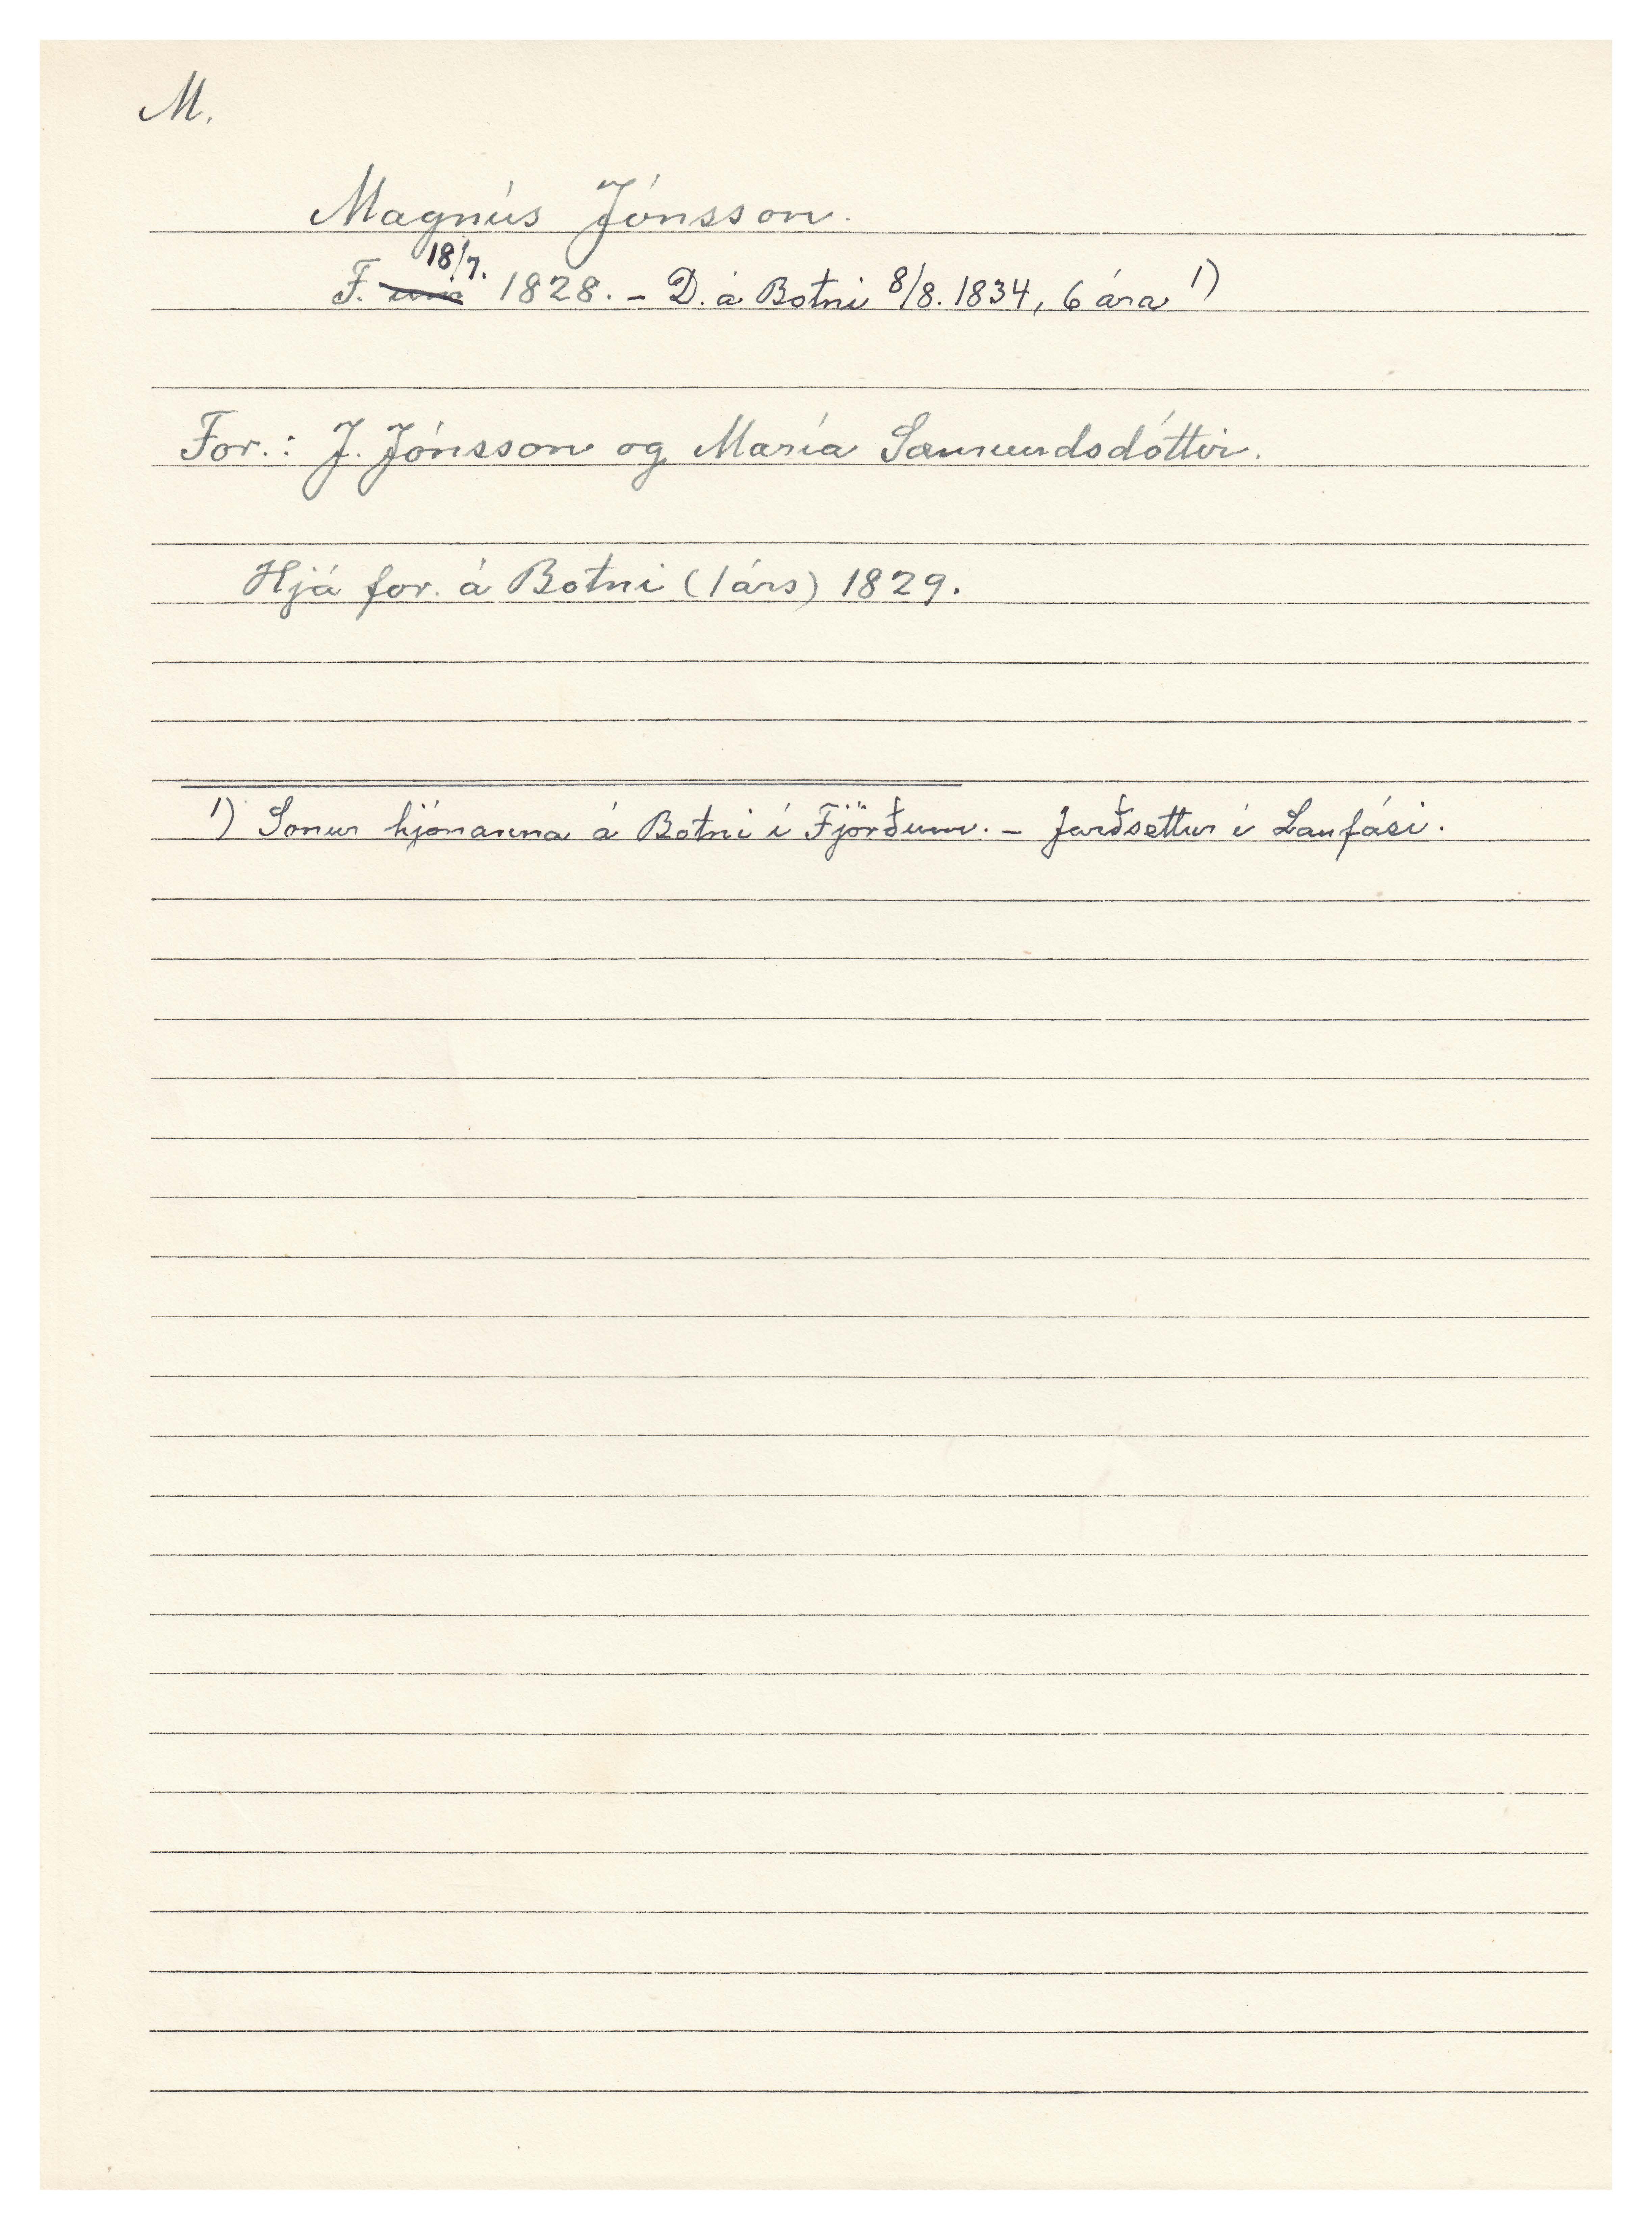 M.
Magnús Jónsson.
F. 18/7. 1828. - D. á Botni 8/8. 1834, 6 ára 1)
For.: J. Jónsson og María Sæmundsdóttir.
Hjá for. á Botni (1 árs) 1829.
1) Sonur hjónanna á Botni í Fjörðum. - Jarðsettur í Laufási.